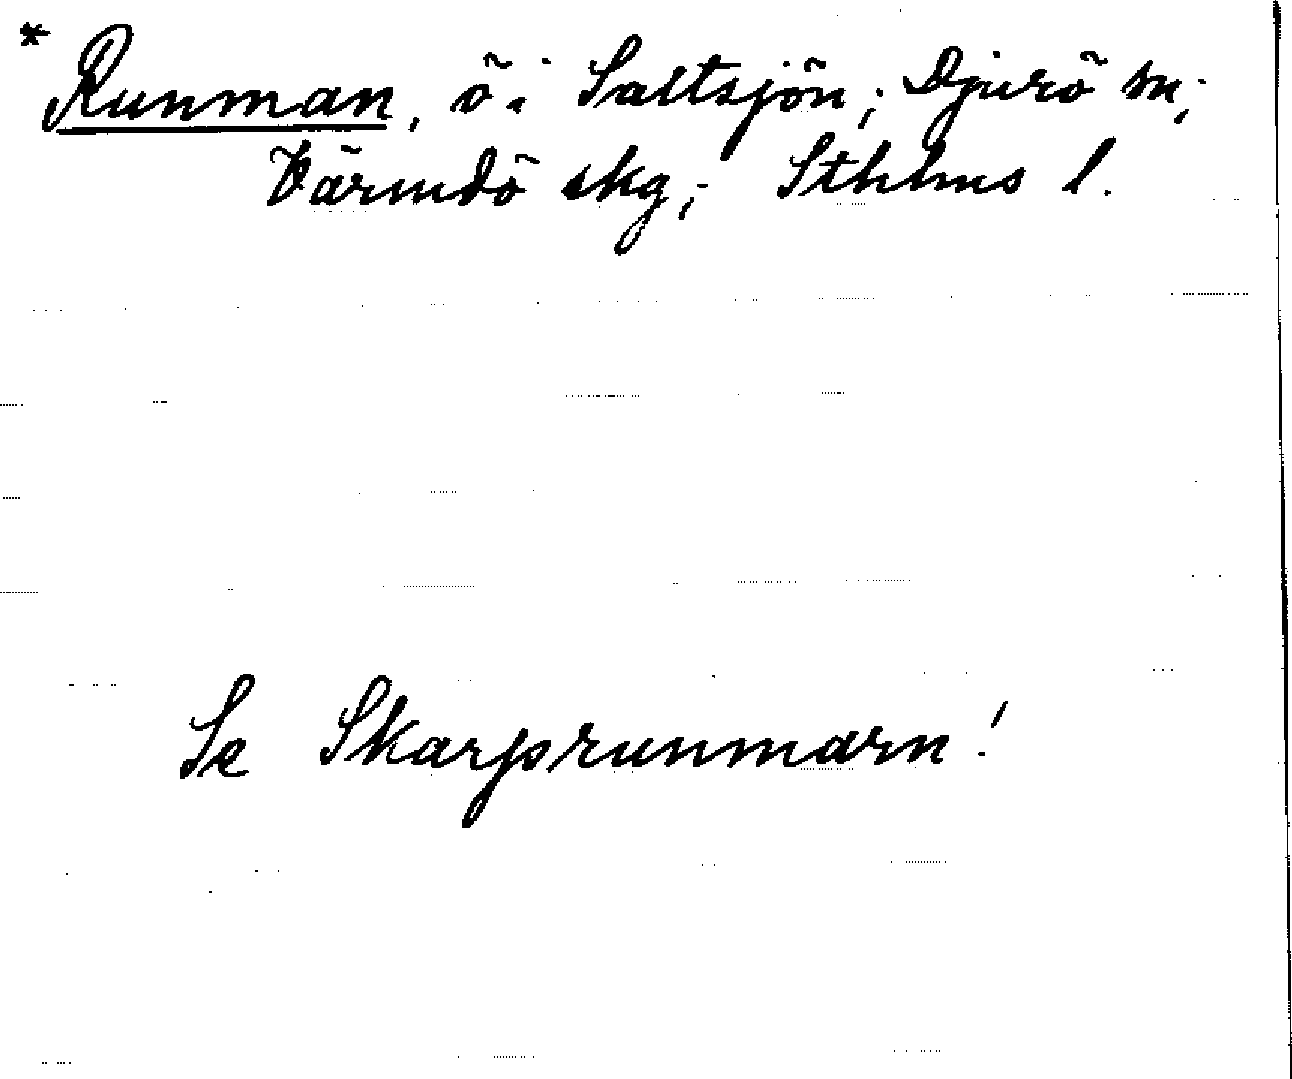 * Runman, ö i Saltsjön; Djurö sn;
Värmdö skg; Sthlms l.
Se Skarprunmarn!